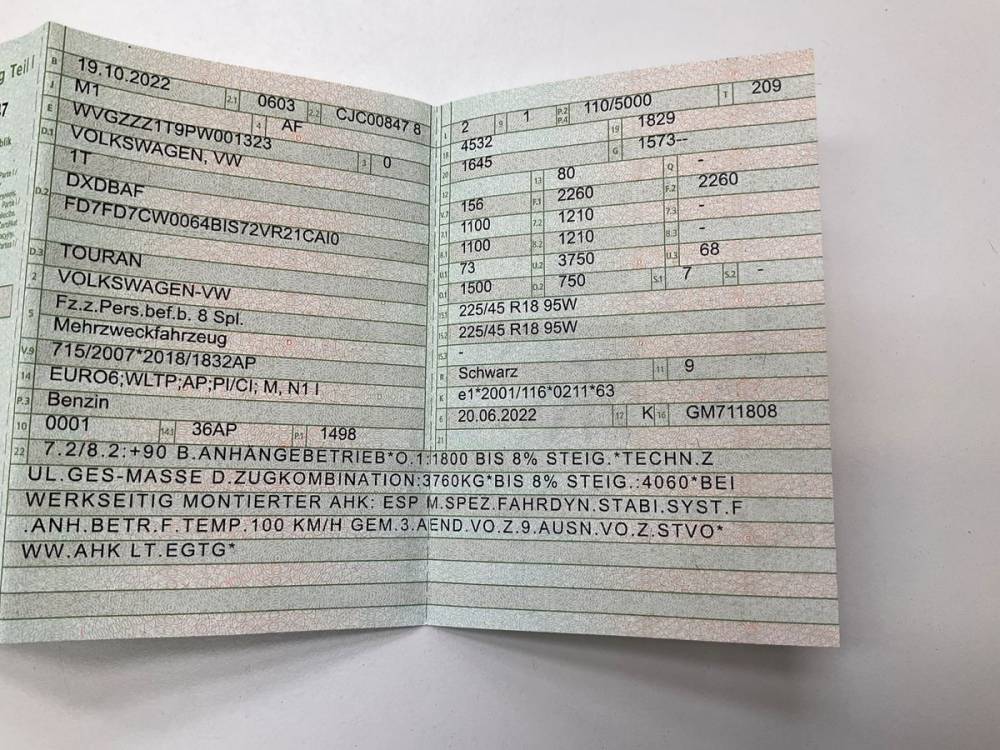 g Teil I
B 19.10.2022 2.1 0603 2.2 CJC00847 8
J M1 4 AF
E WVGZZZ1T9PW001323 3 0
D.1 VOLKSWAGEN, VW
1T
D.2 DXDBAF
FD7FD7CW0064BIS72VR21CAI0
D.3 TOURAN
2 VOLKSWAGEN-VW
5 Fz.z.Pers.bef.b. 8 Spl.
Mehrzweckfahrzeug
V.9 715/2007*2018/1832AP
14 EURO6;WLTP;AP;PI/CI; M, N1 I
P.3 Benzin
10 0001 14.1 36AP P.1 1498
L 2 9 1 P.2 P.4 110/5000 T 209
18 4532 19 1829
20 1645 G 1573--
12 13 80 Q -
V.7 156 F.1 2260 F.2 2260
7.1 1100 7.2 1210 7.3 -
8.1 1100 8.2 1210 8.3 -
U.1 73 U.2 3750 U.3 68
O.1 1500 O.2 750 S.1 7 S.2 -
15.1 225/45 R18 95W
15.2 225/45 R18 95W
15.3 -
R Schwarz 11 9
K e1*2001/116*0211*63
6 20.06.2022 17 K 16 GM711808
21
22 7.2/8.2:+90 B.ANHÄNGEBETRIEB*O.1:1800 BIS 8% STEIG.*TECHN.Z
UL.GES-MASSE D.ZUGKOMBINATION:3760KG*BIS 8% STEIG.:4060*BEI
WERKSEITIG MONTIERTER AHK: ESP M.SPEZ.FAHRDYN.STABI.SYST.F
.ANH.BETR.F.TEMP.100 KM/H GEM.3.AEND.VO.Z.9.AUSN.VO.Z.STVO*
WW.AHK LT.EGTG*